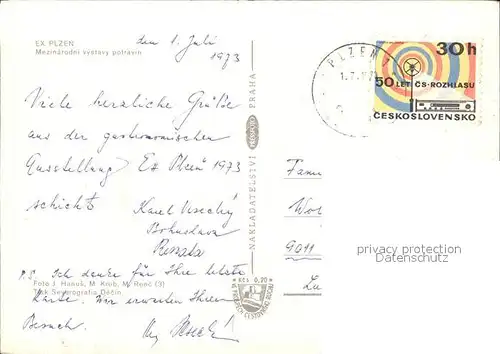 EX PLZEŇ
Mezinárodní výstavy potravin
den 1. Juli
1973
Viele herzliche Grüße
aus der gastronomischen
Ausstellung Ex Plzeň 1973
schickt
Karel
Bohuslava
Renata
P.S. Ich danke für Ihre letzte
Karte. Wir erwarten Ihren
Besuch.
Foto J. Hanuš, M. Krob, M. Renč (3)
Tisk Severografia Děčín
NAKLADATELSTVÍ
PRESSFOTO
PRAHA
Kčs 0,20
PLZEŇ 1
1.7.
30h
50 LET ČS. ROZHLASU
ČESKOSLOVENSKO
Fam
9011
privacy protection
Datenschutz